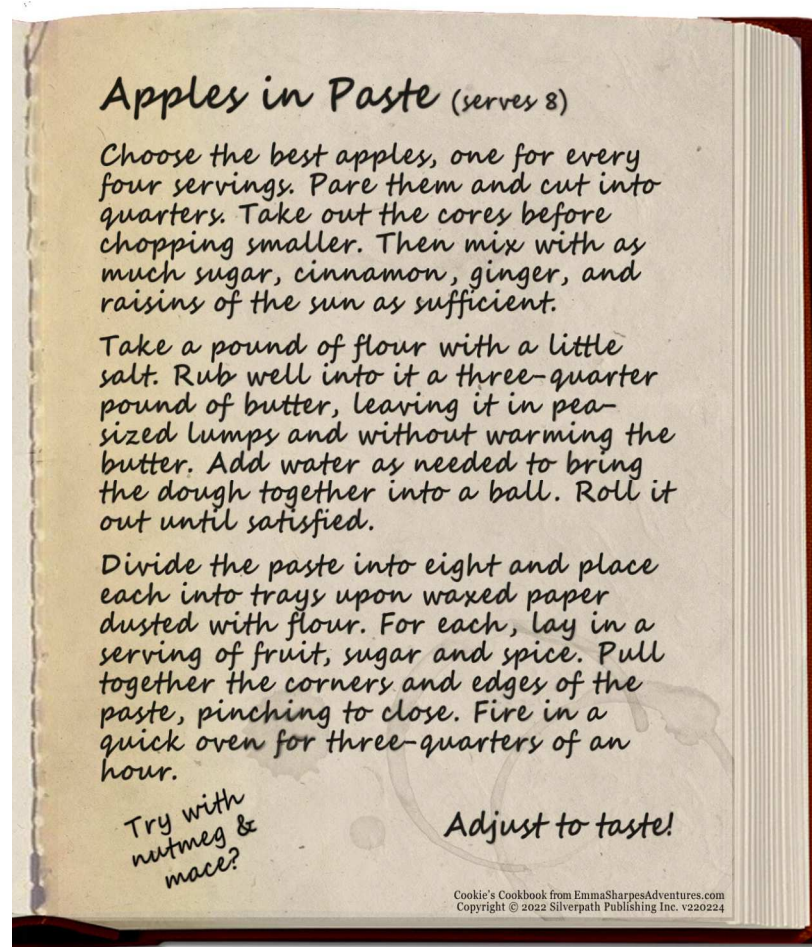 Apples in Paste (serves 8)
Choose the best apples, one for every
four servings. Pare them and cut into
quarters. Take out the cores before
chopping smaller. Then mix with as
much sugar, cinnamon, ginger, and
raisins of the sun as sufficient.
Take a pound of flour with a little
salt. Rub well into it a three-quarter
pound of butter, leaving it in pea-
sized lumps and without warming the
butter. Add water as needed to bring
the dough together into a ball. Roll it
out until satisfied.
Divide the paste into eight and place
each into trays upon waxed paper
dusted with flour. For each, lay in a
serving of fruit, sugar and spice. Pull
together the corners and edges of the
paste, pinching to close. Fire in a
quick oven for three-quarters of an
hour.
Try with
nutmeg &
mace?
Adjust to taste!
Cookie's Cookbook from EmmaSharpesAdventures.com
Copyright © 2022 Silverpath Publishing Inc. v220224